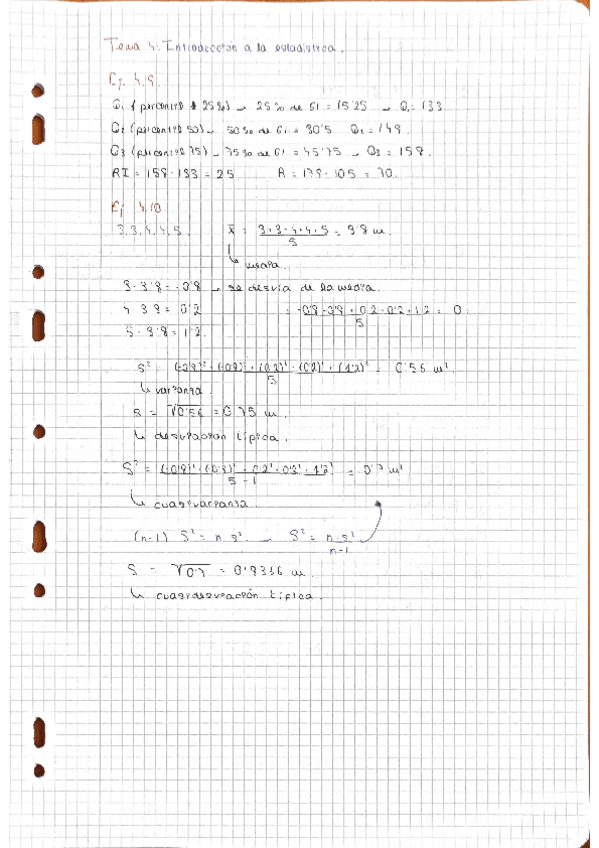 Tema 4. Introducción a la estadística.
Ej. 4.9.
Q1 (percentil 25%) → 25% de 61 = 15'25 → Q1 = 133
Q2 (percentil 50) → 50% de 61 = 30'5 Q2 = 149.
Q3 (percentil 75) → 75% de 61 = 45'75 → Q3 = 158.
RI = 158 - 133 = 25 R = 175 - 105 = 70.
Ej 4.10
3, 3, 4, 4, 5. x̄ = 3+3+4+4+5 / 5 = 3'8 m.
↳ media.
3 - 3'8 = -0'8 → se desvía de la media.
4 - 3'8 = 0'2 = -0'8 - 0'8 + 0'2 + 0'2 + 1'2 / 5 = 0
5 - 3'8 = 1'2.
s² = (-0'8)² + (-0'8)² + (0'2)² + (0'2)² + (1'2)² / 5 = 0'56 m²
↳ varianza.
s = √0'56 = 0'75 m.
↳ desviación típica.
S² = (-0'8)² + (-0'8)² + 0'2² + 0'2² + 1'2² / 5-1 = 0'7 m²
↳ cuasivarianza.
(n-1) S² = n s² → S² = n·s² / n-1
S = √0'7 = 0'8366 m.
↳ cuasidesviación típica.